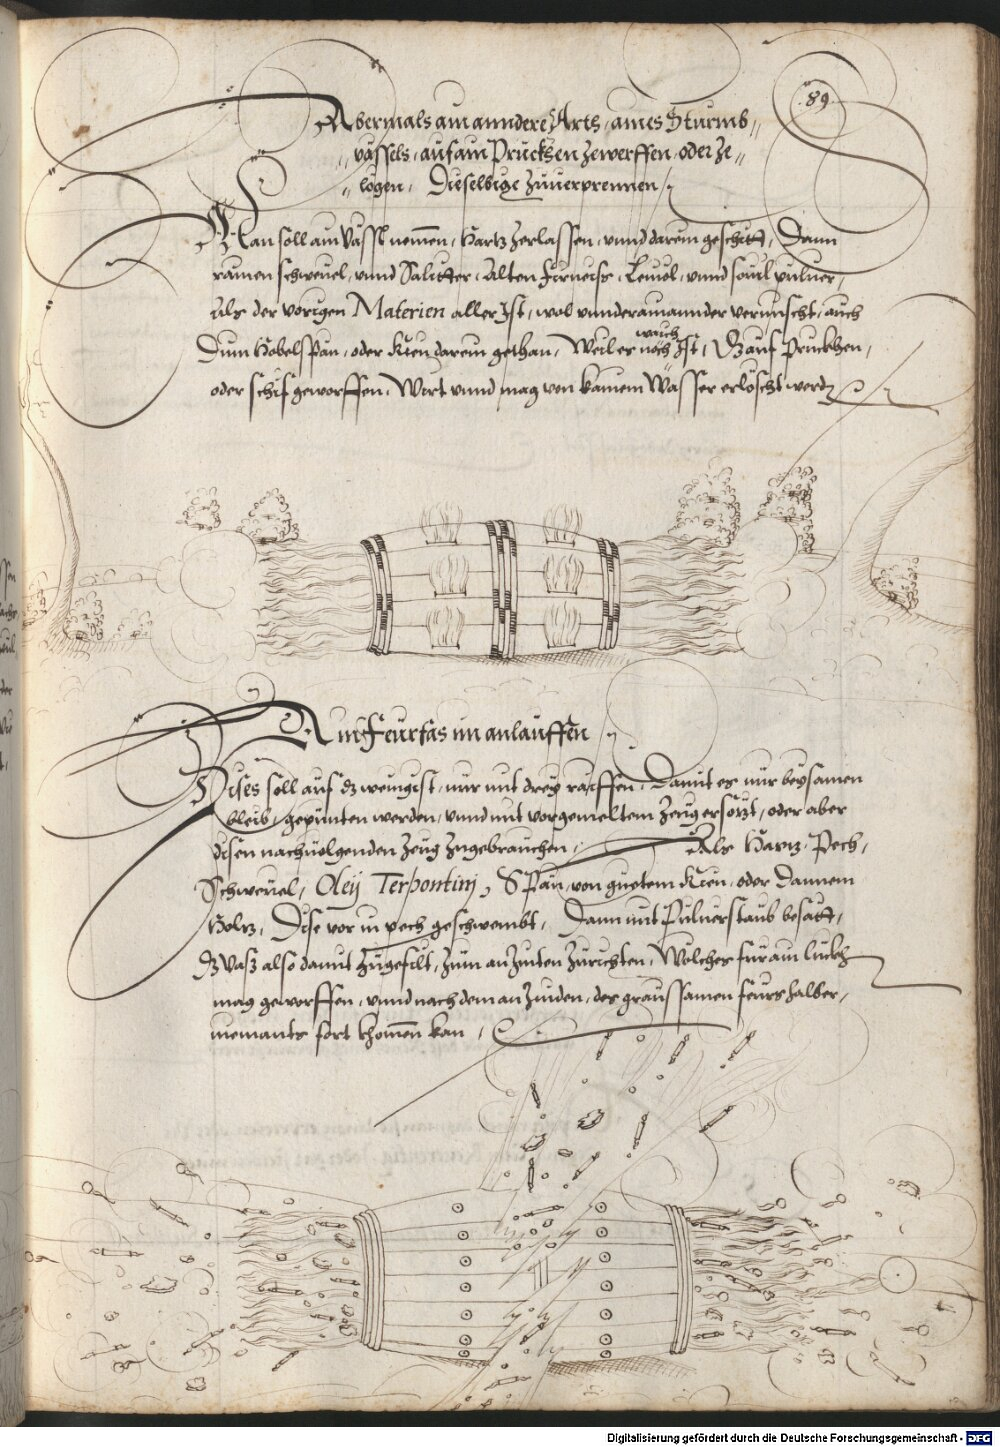 .89.
Abermals ain anndere Arth, aines Sturmb„
„vässels, auf ain Prückhen zewerffen, oder ze„
„legen, Dieselbige zuuerprennen,
Man soll ain Vässl nemen, Hartz zerlassen, vnnd darein geschitt, Dann
ramen schweuel, vnnd Salitter, Alten firneiß, Leinöl, vnnd souil puluer,
Als der vorigen Materien aller Ist, wol vnnderainannder vermischt, auch
Dürr Hobelspän, oder Kien darein gethan, Weil er noch waich Ist, Dz auf Pruckhen,
oder schif geworffen, Wirt vnnd mag von kainem Wasser erlöscht werd
Ain Feurfas im anlauffen
Dises soll auf dz wenigist, nur mit drey raiffen, Damit es nur beysamen
bleib, gepunten werden, vnnd mit vorgemeltem Zeug ersözt, oder aber
disen nachuolgenden Zeug zugebrauchen, Als Hartz, Pech,
Schweuel, Oleij Terpontinj, Spän, von guetem Kien, oder Dannem
Holtz, Dise vor in pech geschwembt, Dann mit Puluerstaub besätt,
dz Vasz also damit zugefilt, zum anzinten zurichten, Welches für ain luckh
mag geworffen, vnnd nach dem anzinden, des graussamen feurs halber,
niemants fort khomen kan,
Digitalisierung gefördert durch die Deutsche Forschungsgemeinschaft - DFG